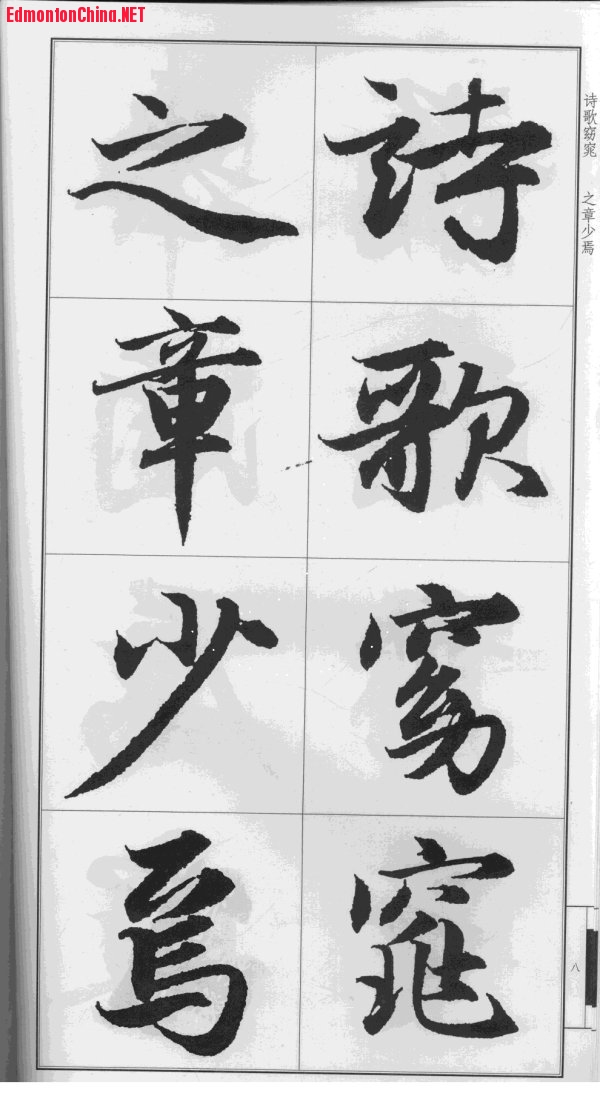 EdmontonChina.NET
詩歌窈窕
之章少焉
诗歌窈窕 之章少焉
八